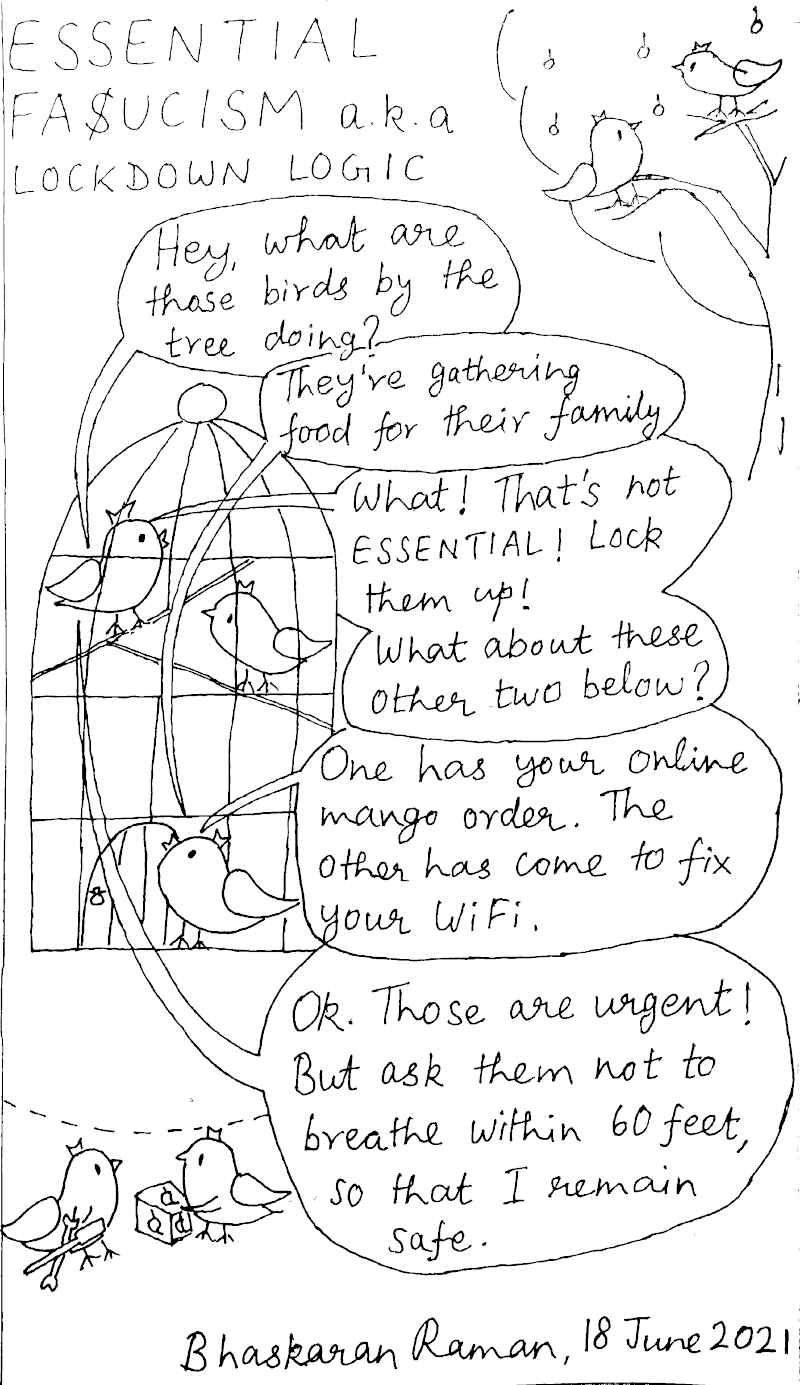 ESSENTIAL
FA$UCISM a.k.a
LOCKDOWN LOGIC
Hey, what are
those birds by the
tree doing?
They're gathering
food for their family
What! That's not
ESSENTIAL! Lock
them up!
What about these
other two below?
One has your online
mango order. The
other has come to fix
your WiFi.
Ok. Those are urgent!
But ask them not to
breathe within 60 feet,
so that I remain
safe.
a
a a
Bhaskaran Raman, 18 June 2021